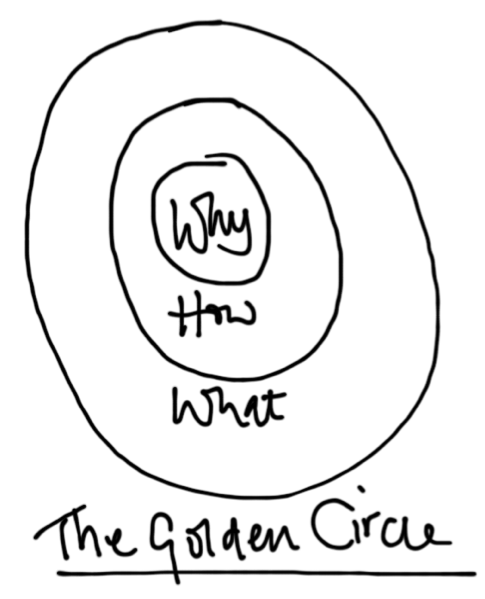 Why
How
What
The Golden Circle